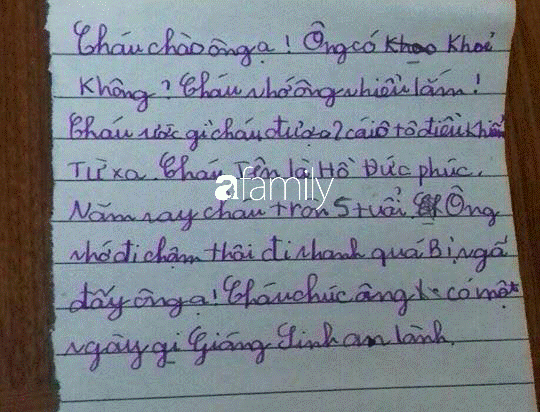 Cháu chào ông ạ! Ông có khoẻ
không? Cháu nhớ ông nhiều lắm!
Cháu ước gì cháu được 2 cái ô tô điều khiển
Từ xa. Cháu Tên là Hồ Đức phúc.
afamily
Năm nay cháu tròn 5 tuổi. Ông
nhớ đi chậm thôi đi nhanh quá Bị ngã
đấy ông ạ! Cháu chúc ông có một
ngày gi Giáng Sinh an lành.